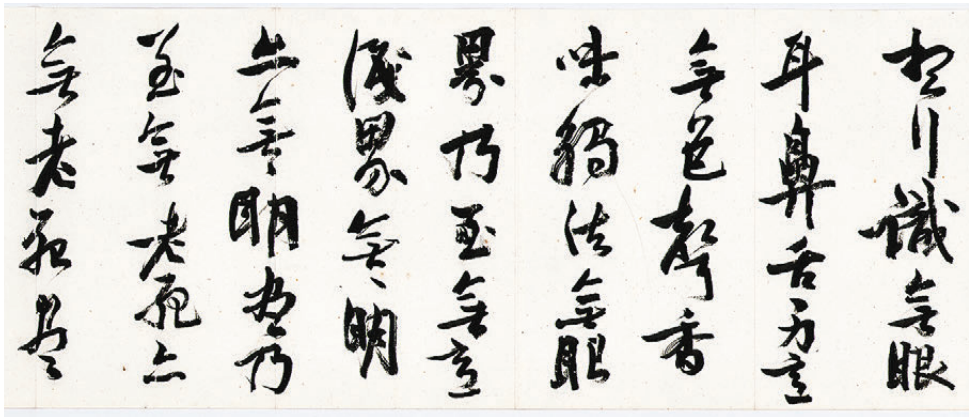 想行識無眼
耳鼻舌身意
無色聲香
味觸法無眼
界乃至無意
識界無〻明
亦無明盡乃
至無老死亦
無老死盡